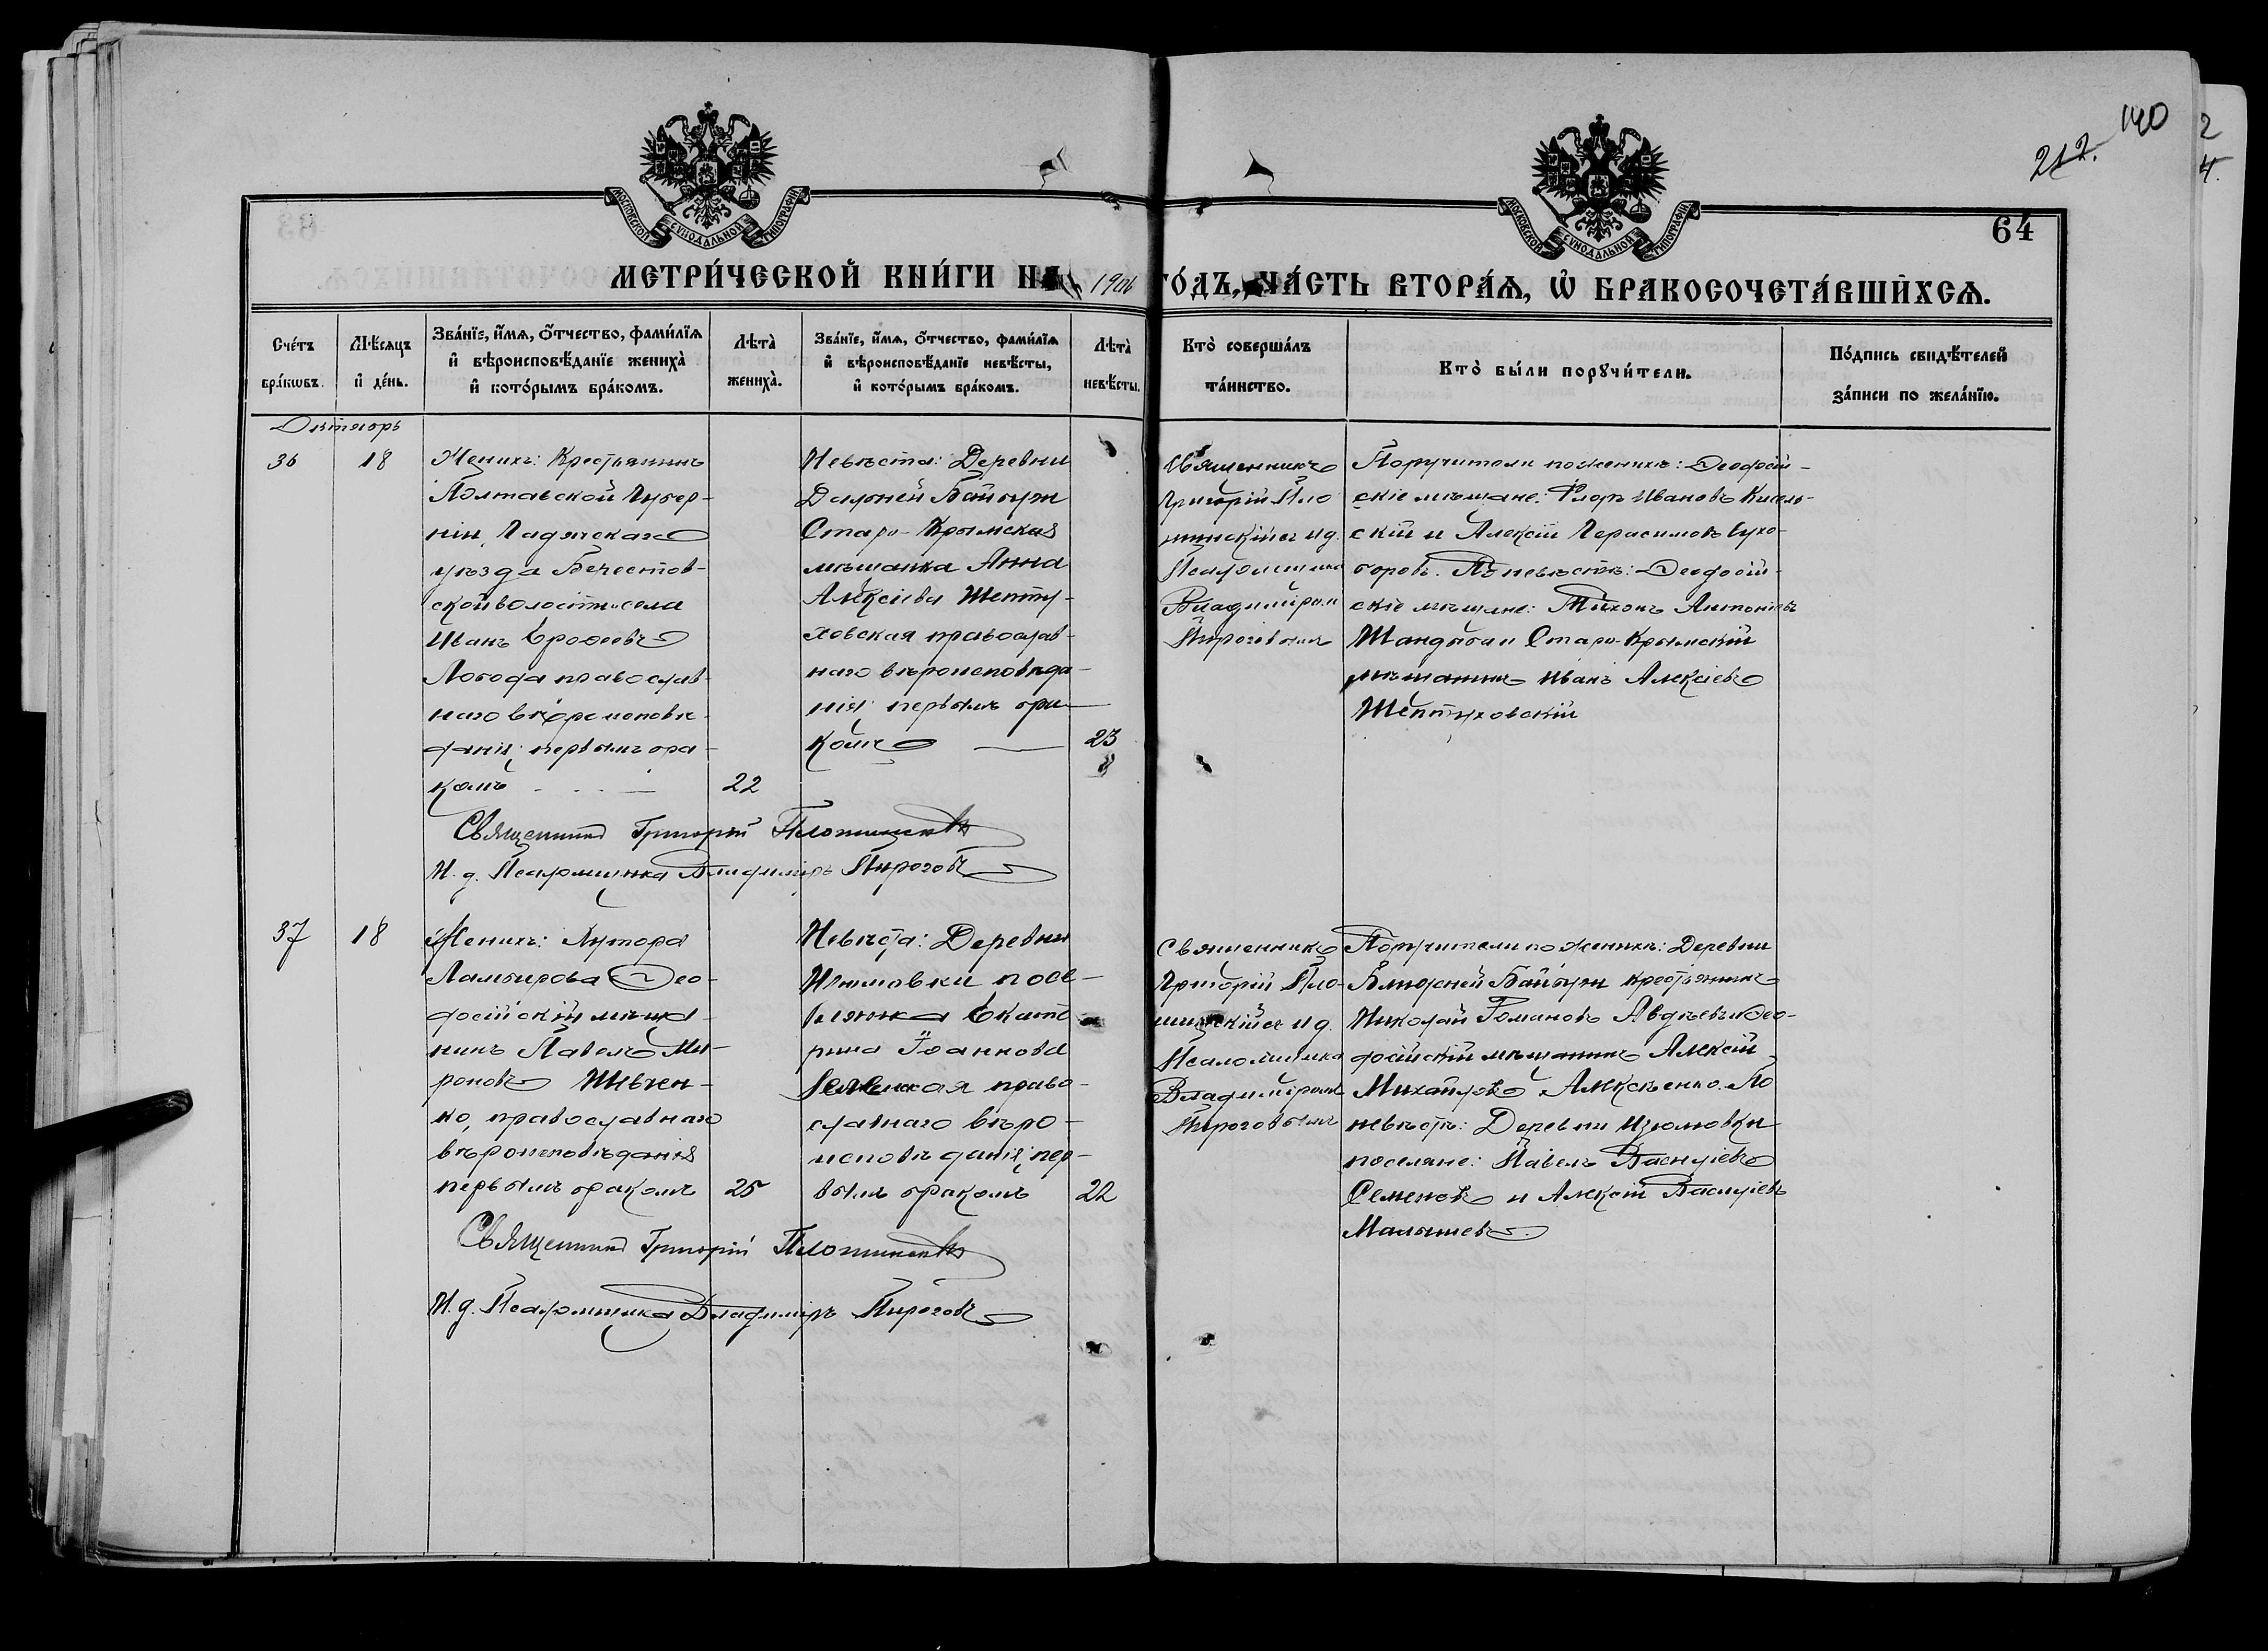 140
212.
2
4.
64
МОСКОВСКОЙ СѴНОДАЛЬНОЙ ТИПОГРАФІИ
МОСКОВСКОЙ СѴНОДАЛЬНОЙ ТИПОГРАФІИ
МЕТРИ́ЧЕСКОЙ КНИ́ГИ НА 1906 ГО́ДЪ, ЧА́СТЬ ВТОРА́Ѧ, Ѡ҆ БРАКОСОЧЕТА́ВШИХСѦ.
Сче́тъ бра́кѡвъ.
Мѣ́сяцъ и҆ де́нь.
Зва́нїе, и҆́мѧ, ѻ҆́тчество, фами́лїѧ и҆ вѣроисповѣ́данїе жениха̀ и҆ кото́рымъ бра́комъ.
Лѣта̀ жениха̀.
Зва́нїе, и҆́мѧ, ѻ҆́тчество, фами́лїѧ и҆ вѣроисповѣ́данїе невѣ́сты, и҆ кото́рымъ бра́комъ.
Лѣта̀ невѣ́сты.
Кто̀ соверша́лъ та́инство.
Кто̀ бы́ли порꙋчи́тели.
По́дпись свидѣ́телей за́писи по жела́нїю.
Октябрь
36
18
Женихъ: Крестьянинъ
Полтавской Губер-
ніи, Гадячскаго
уѣзда Бечестов-
ской волости и села
Иванъ Ерофеевъ
Логода православ-
наго вѣроисповѣ-
данія, первымъ бра-
комъ
22
Невѣста: Деревни
Дальней Байбуги
Старо-Крымская
мѣщанка Анна
Алексіева Шепту-
ховская православ-
наго вѣроисповѣда-
нія первымъ бра-
комъ
23
Священникъ
Григорій Пло-
тинскій съ и д.
Псаломщика
Владиміром
Пироговымъ
Поручители по женихѣ: Ѳеодосій-
скіе мѣщане: Флоръ Ивановъ Кисель-
скій и Алексій Герасимовъ Сухо-
боровъ. По невѣстѣ: Ѳеодосій-
скіе мѣщане: Тихонъ Антоніевъ
Шандыба и Старо-Крымскій
мѣщанинъ Иванъ Алексіевъ
Шептуховскій
Священникъ Григорій
И. д. Псаломщика Владиміръ Пироговъ
37
18
Женихъ: Хутора
Ламбирова Ѳео-
досійскій мѣща-
нинъ Павелъ Ми-
роновъ Шевчен-
ко, православнаго
вѣроисповѣданія
первымъ бракомъ
25
Невѣста: Деревни
Изюмовки посе-
лянка Екате
рина Іоаннова
право-
славнаго вѣро-
исповѣданія, пер-
вымъ бракомъ
22
Священникъ
Григорій Пло-
тинскій съ и д.
Псаломщика
Владиміромъ
Пироговымъ
Поручители по женихѣ: Деревни
Ближней Байбуги крестьянинъ
Николай Романовъ Авдѣевъ и Ѳео-
досійскій мѣщанинъ Алексій
Михайловъ Алексѣенко. По
невѣстѣ: Деревни Изюмовки
поселяне: Павелъ Василіевъ
Семеновъ и Алексій Василіевъ
Малышевъ.
Священникъ Григорій
И. д. Псаломщика Владиміръ Пироговъ